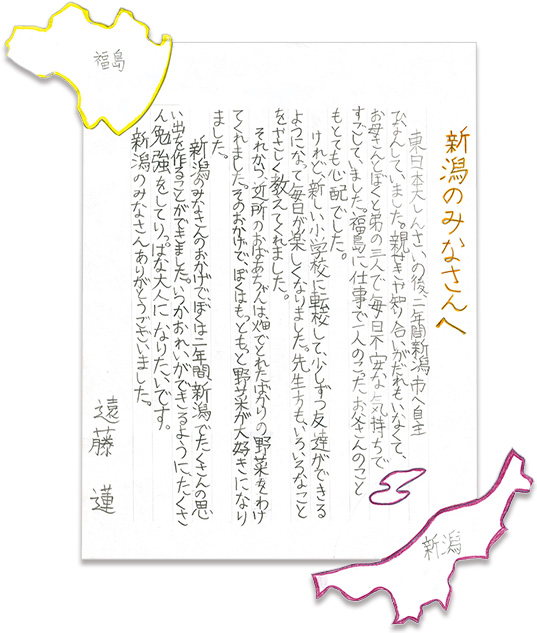 福島
新潟のみなさんへ
東日本大しんさいの後、二年間新潟市へ自主
ひなんしていました。親せきや知り合いがだれもいなくて、
お母さんとぼくと弟の三人で毎日不安な気持ちで
すごしていました。福島に仕事で一人のこったお父さんのこと
もとても心配でした。
けれど、新しい小学校に転校して、少しずつ友達ができる
ようになって毎日が楽しくなりました。先生方も、いろいろなこと
をやさしく教えてくれました。
それから、近所のおばあちゃんは、畑でとれたばかりの野菜をわけ
てくれました。そのおかげで、ぼくはもっともっと野菜が大好きになり
ました。
新潟のみなさんのおかげでぼくは二年間、新潟でたくさんの思
い出を作ることができました。いつかおれいができるように、たくさ
ん勉強をしてりっぱな大人になりたいです。
新潟のみなさんありがとうございました。
遠藤 蓮
新潟